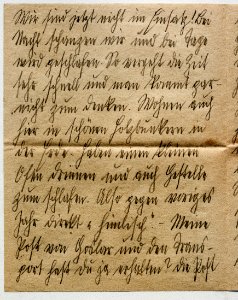 Wir sind jetzt nicht im Einsatz! Bei
Nacht schanzen wir und bei Tage
wird geschlafen. So vergeht die Zeit
sehr schnell und man kommt gar-
nicht zum denken. Wohnen auch
hier in schönen Holzbunkern in
der Erde. Haben einen kleinen
Ofen drinnen und auch Gestelle
zum schlafen. Also gegen voriges
Jahr direkt "himmlisch". Meine
Post von und den Trans-
port hast du ja erhalten? die Post